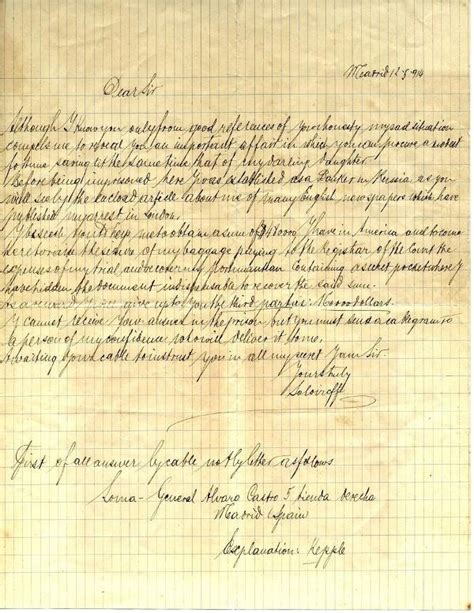 Madrid 12 5 914
Dear Sir
Although I know you only from good references of your honesty my sad situation
compels me to reveal you an important affair in which you can procure a modest
fortune saving at the same time that of my darling daughter.
Before being imprisoned here I was established as a Banker in Russia as you
will see by the enclosed article about me of many English newspapers which have
published my arrest in London.
I beseech you to help me to obtain a sum of 480000 $ I have in America and to come
here to raise the seizure of my baggage paying to the Registrar of the Court the
expenses of my trial and recover my portmanteau containing a secret pocket where I
have hidden the document indispensable to recover the said sum.
As a reward I will give up to you the third part viz: 160000 dollars.
I cannot receive your answer in the prison but you must send a cablegram to
a person of my confidence who will deliver it to me.
Awaiting your cable to instruct you in all my secret. I am Sir
Yours truly
First of all answer by cable not by letter as follows
General Alvaro Castro 5 tienda derecha
Madrid (Spain
Explanation: Kepple